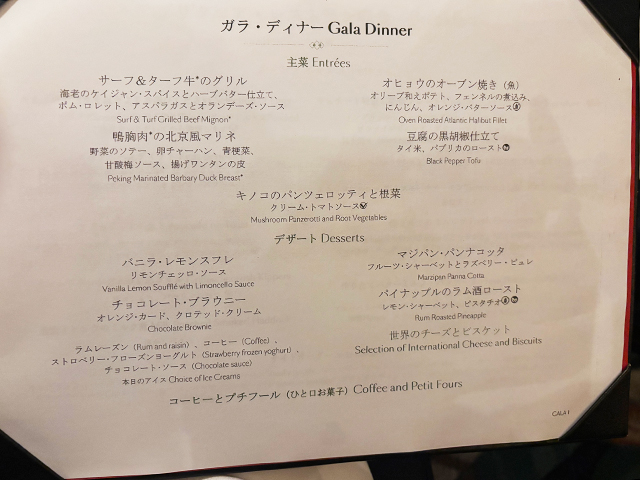 ガラ・ディナー Gala Dinner
主菜 Entrées
サーフ＆ターフ牛*のグリル
海老のケイジャン・スパイスとハーブバター仕立て、
ポム・ロレット、アスパラガスとオランデーズ・ソース
Surf & Turf Grilled Beef Mignon*
鴨胸肉*の北京風マリネ
野菜のソテー、卵チャーハン、青梗菜、
甘酸梅ソース、揚げワンタンの皮
Peking Marinated Barbary Duck Breast*
オヒョウのオーブン焼き（魚）
オリーブ和えポテト、フェンネルの煮込み、
にんじん、オレンジ・バターソース
Oven Roasted Atlantic Halibut Fillet
豆腐の黒胡椒仕立て
タイ米、パプリカのロースト
Black Pepper Tofu
キノコのパンツェロッティと根菜
クリーム・トマトソース
Mushroom Panzerotti and Root Vegetables
デザート Desserts
バニラ・レモンスフレ
リモンチェッロ・ソース
Vanilla Lemon Soufflé with Limoncello Sauce
チョコレート・ブラウニー
オレンジ・カード、クロテッド・クリーム
Chocolate Brownie
ラムレーズン（Rum and raisin）、コーヒー（Coffee）、
ストロベリー・フローズンヨーグルト（Strawberry frozen yoghurt）、
チョコレート・ソース（Chocolate sauce）
本日のアイス Choice of Ice Creams
マジパン・パンナコッタ
フルーツ・シャーベットとラズベリー・ピュレ
Marzipan Panna Cotta
パイナップルのラム酒ロースト
レモン・シャーベット、ピスタチオ
Rum Roasted Pineapple
世界のチーズとビスケット
Selection of International Cheese and Biscuits
コーヒーとプチフール（ひと口お菓子）Coffee and Petit Fours
GALA 1